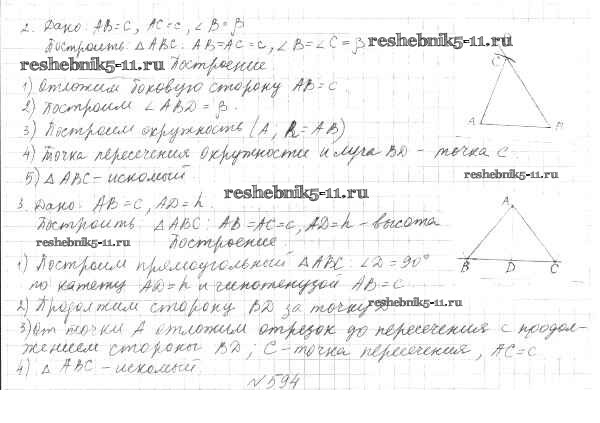 2. Дано: AB=c, AC=c, ∠B=β
Построить: △ABC: AB=AC=c, ∠B=∠C=β reshebnik5-11.ru
reshebnik5-11.ru Построение
1) Отложим боковую сторону AB=c.
2) Построим ∠ABD=β.
3) Построим окружность (A, R=AB)
4) Точка пересечения окружности и луча BD – точка C.
5) △ABC – искомый.
C
A
B
reshebnik5-11.ru
3. Дано: AB=c, AD=h.
Построить: △ABC: AB=AC=c, AD=h – высота
reshebnik5-11.ru Построение.
1) Построим прямоугольный △ABC: ∠D=90°
по катету AD=h и гипотенузой AB=c
2) Продолжим сторону BD за точку D reshebnik5-11.ru
3) От точки A отложим отрезок до пересечения с продол-
жением стороны BD; C – точка пересечения, AC=c
4) △ABC – искомый.
A
B D C
reshebnik5-11.ru
№594